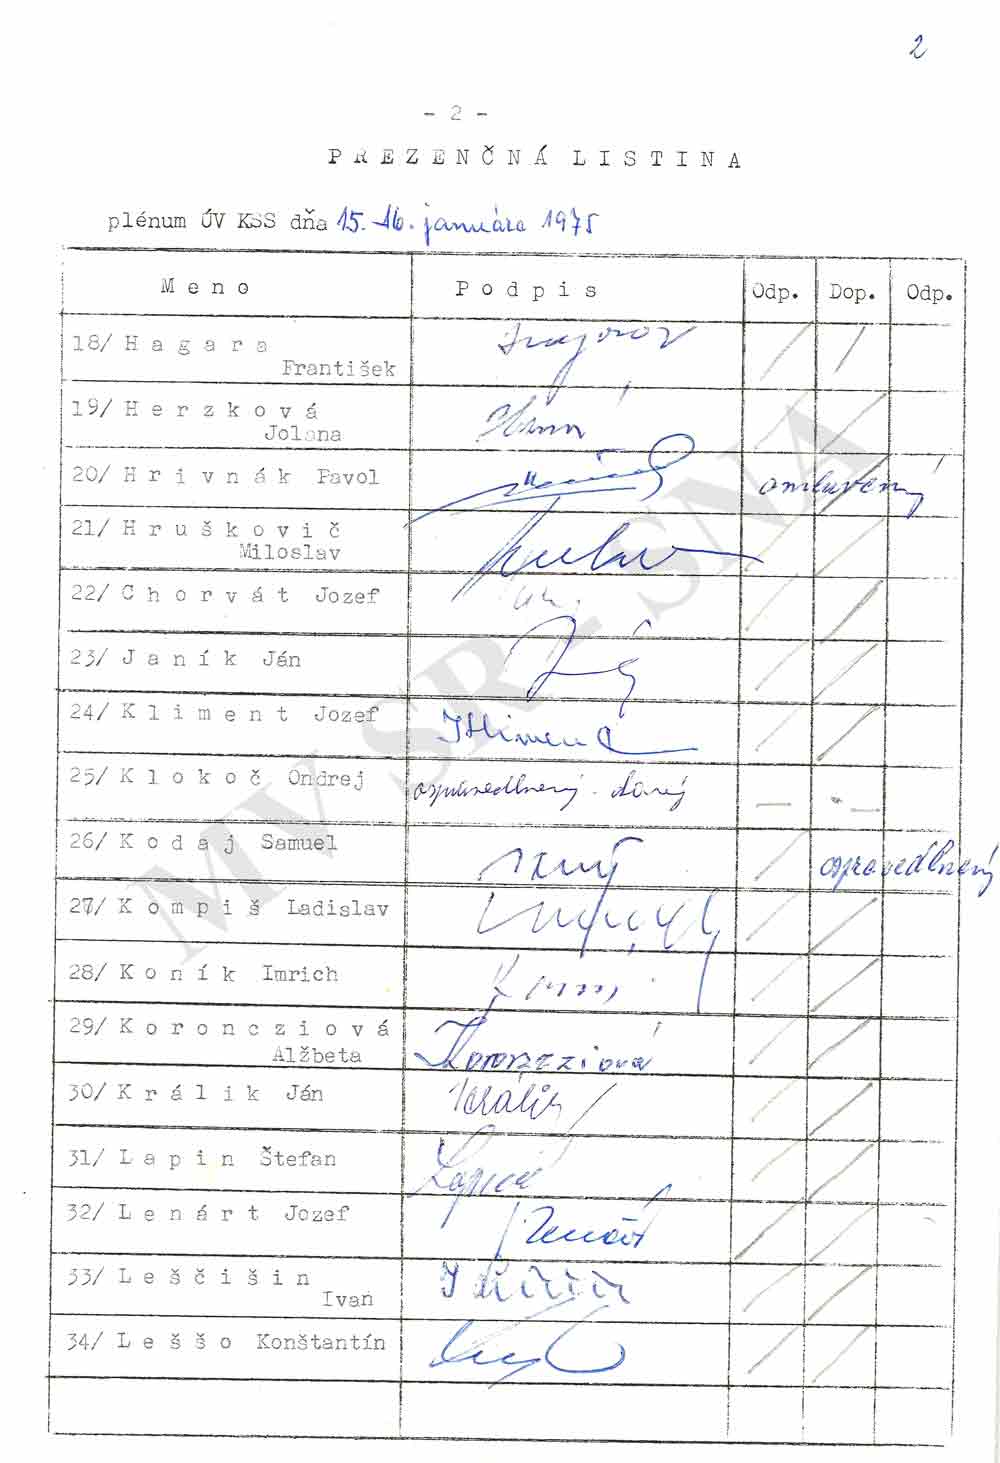 2
- 2 -
PREZENČNÁ LISTINA
plénum ÚV KSS dňa 15.-16. januára 1975
Meno Podpis Odp. Dop. Odp.
18/ Hagara
František
19/ Herzková
Jolana
20/ Hrivnák Pavol omluvený
21/ Hruškovič
Miloslav
22/ Chorvát Jozef
23/ Janík Ján
24/ Kliment Jozef Kliment
25/ Klokoč Ondrej ospravedlnený
26/ Kodaj Samuel ospravedlnený
27/ Kompiš Ladislav
28/ Koník Imrich
29/ Koroncziová
Alžbeta Koroncziová
30/ Králik Ján Králik
31/ Lapin Štefan Lapin
32/ Lenárt Jozef Lenárt
33/ Leščišin
Ivan
34/ Leššo Konštantín
MV SR - SNA